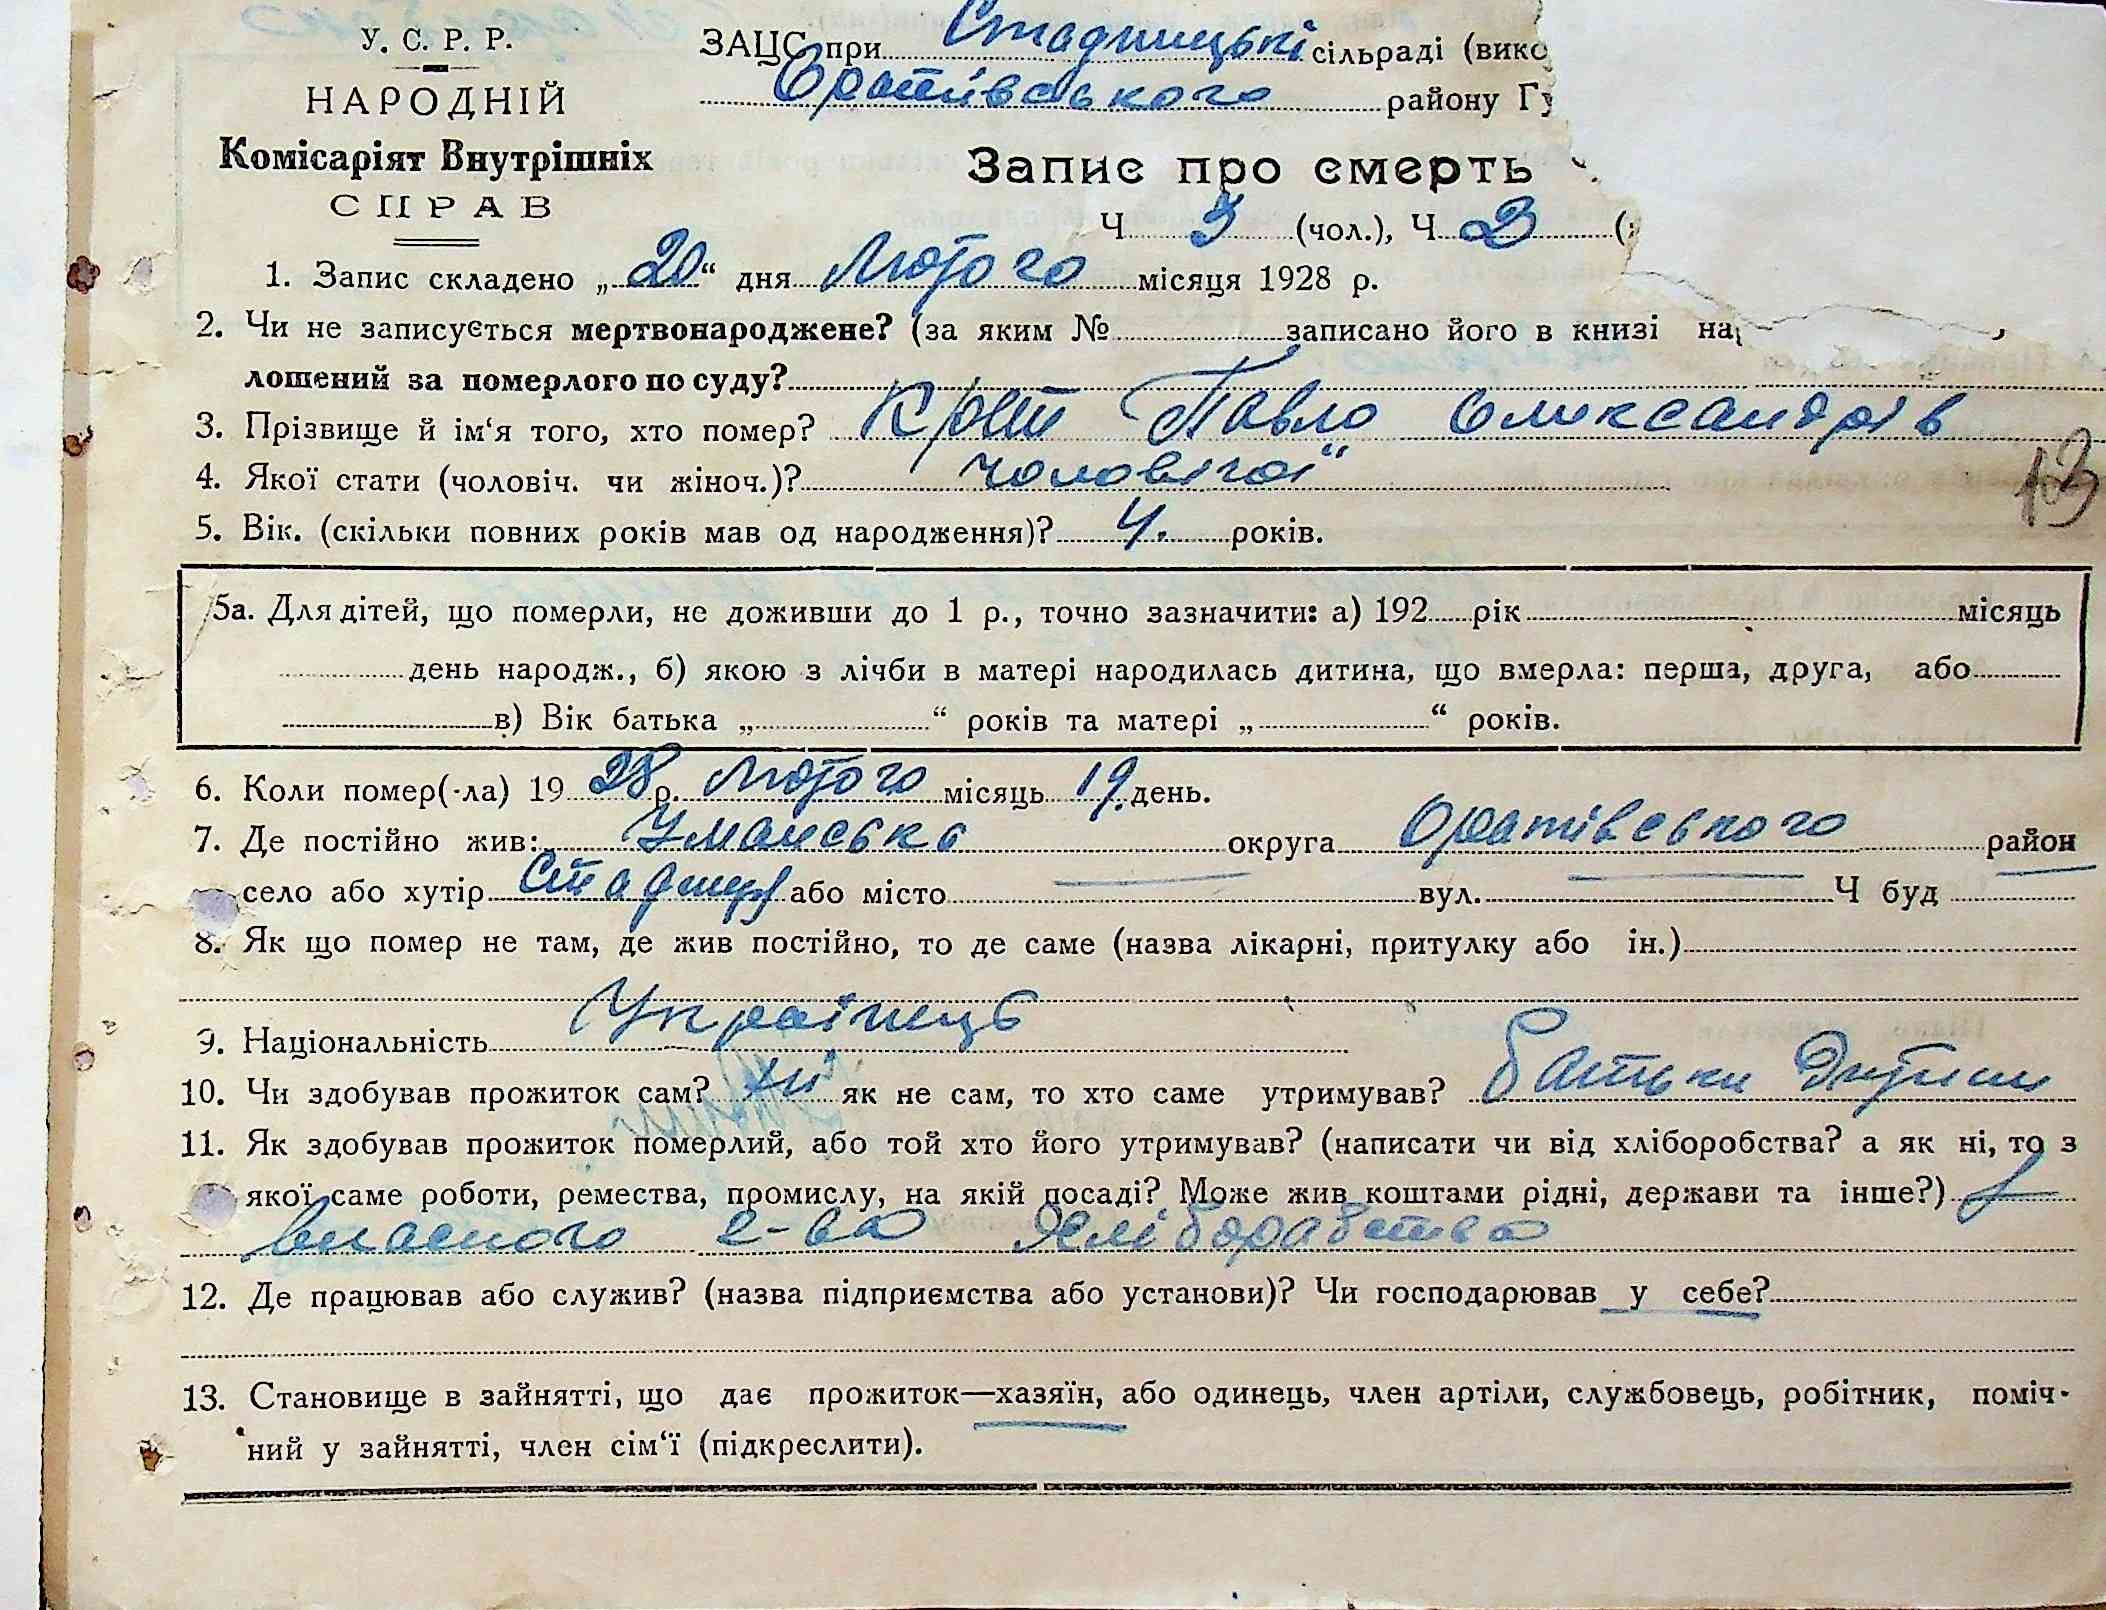 У. С. Р. Р.
НАРОДНІЙ
Комісаріят Внутрішніх
СПРАВ
ЗАЦС при Стадницькі сільраді (вико
Оратівського району Гу
Запис про смерть
Ч 3 (чол.), Ч 2 (
1. Запис складено „20“ дня Лютого місяця 1928 р.
2. Чи не записується мертвонароджене? (за яким № записано його в книзі на
лошений за померлого по суду?
3. Прізвище й ім‘я того, хто помер? Крат Павло Олександрів
4. Якої стати (чоловіч. чи жіноч.)? чоловічої
5. Вік. (скільки повних років мав од народження)? 4. років.
13
5а. Для дітей, що померли, не доживши до 1 р., точно зазначити: а) 192 рік місяць
день народж., б) якою з лічби в матері народилась дитина, що вмерла: перша, друга, або
в) Вік батька „ “ років та матері „ “ років.
6. Коли помер(-ла) 19 28 р. Лютого місяць 19 день.
7. Де постійно жив: Уманська округа Оратівського район
село або хутір або місто вул. Ч буд
8. Як що помер не там, де жив постійно, то де саме (назва лікарні, притулку або ін.)
9. Національність Українець
10. Чи здобував прожиток сам? ні як не сам, то хто саме утримував? Батьки Дитини
11. Як здобував прожиток померлий, або той хто його утримував? (написати чи від хліборобства? а як ні, то з
якої саме роботи, ремества, промислу, на якій посаді? Може жив коштами рідні, держави та інше?) з
власного г-ва Хліборобства
12. Де працював або служив? (назва підприємства або установи)? Чи господарював у себе?
13. Становище в зайнятті, що дає прожиток—хазяїн, або одинець, член артіли, службовець, робітник, поміч-
ний у зайнятті, член сім‘ї (підкреслити).